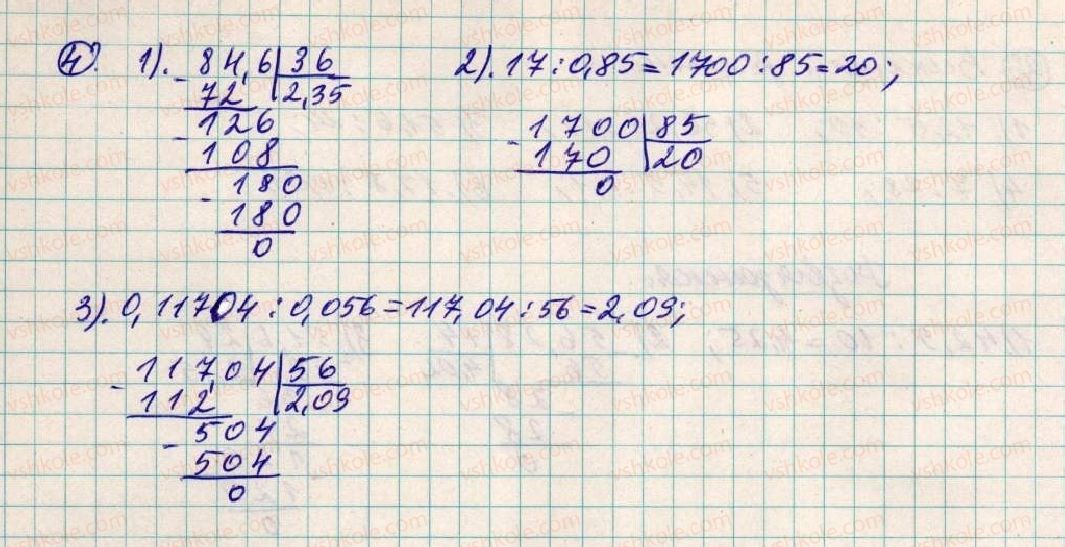 4. 1). 84,6 | 36
- 72 | 2,35
- 126
108
- 180
180
0
2). 17 : 0,85 = 1700 : 85 = 20;
- 1700 | 85
170 | 20
0
3). 0,11704 : 0,056 = 117,04 : 56 = 2,09;
- 117,04 | 56
112 | 2,09
- 504
504
0
vshkole.com